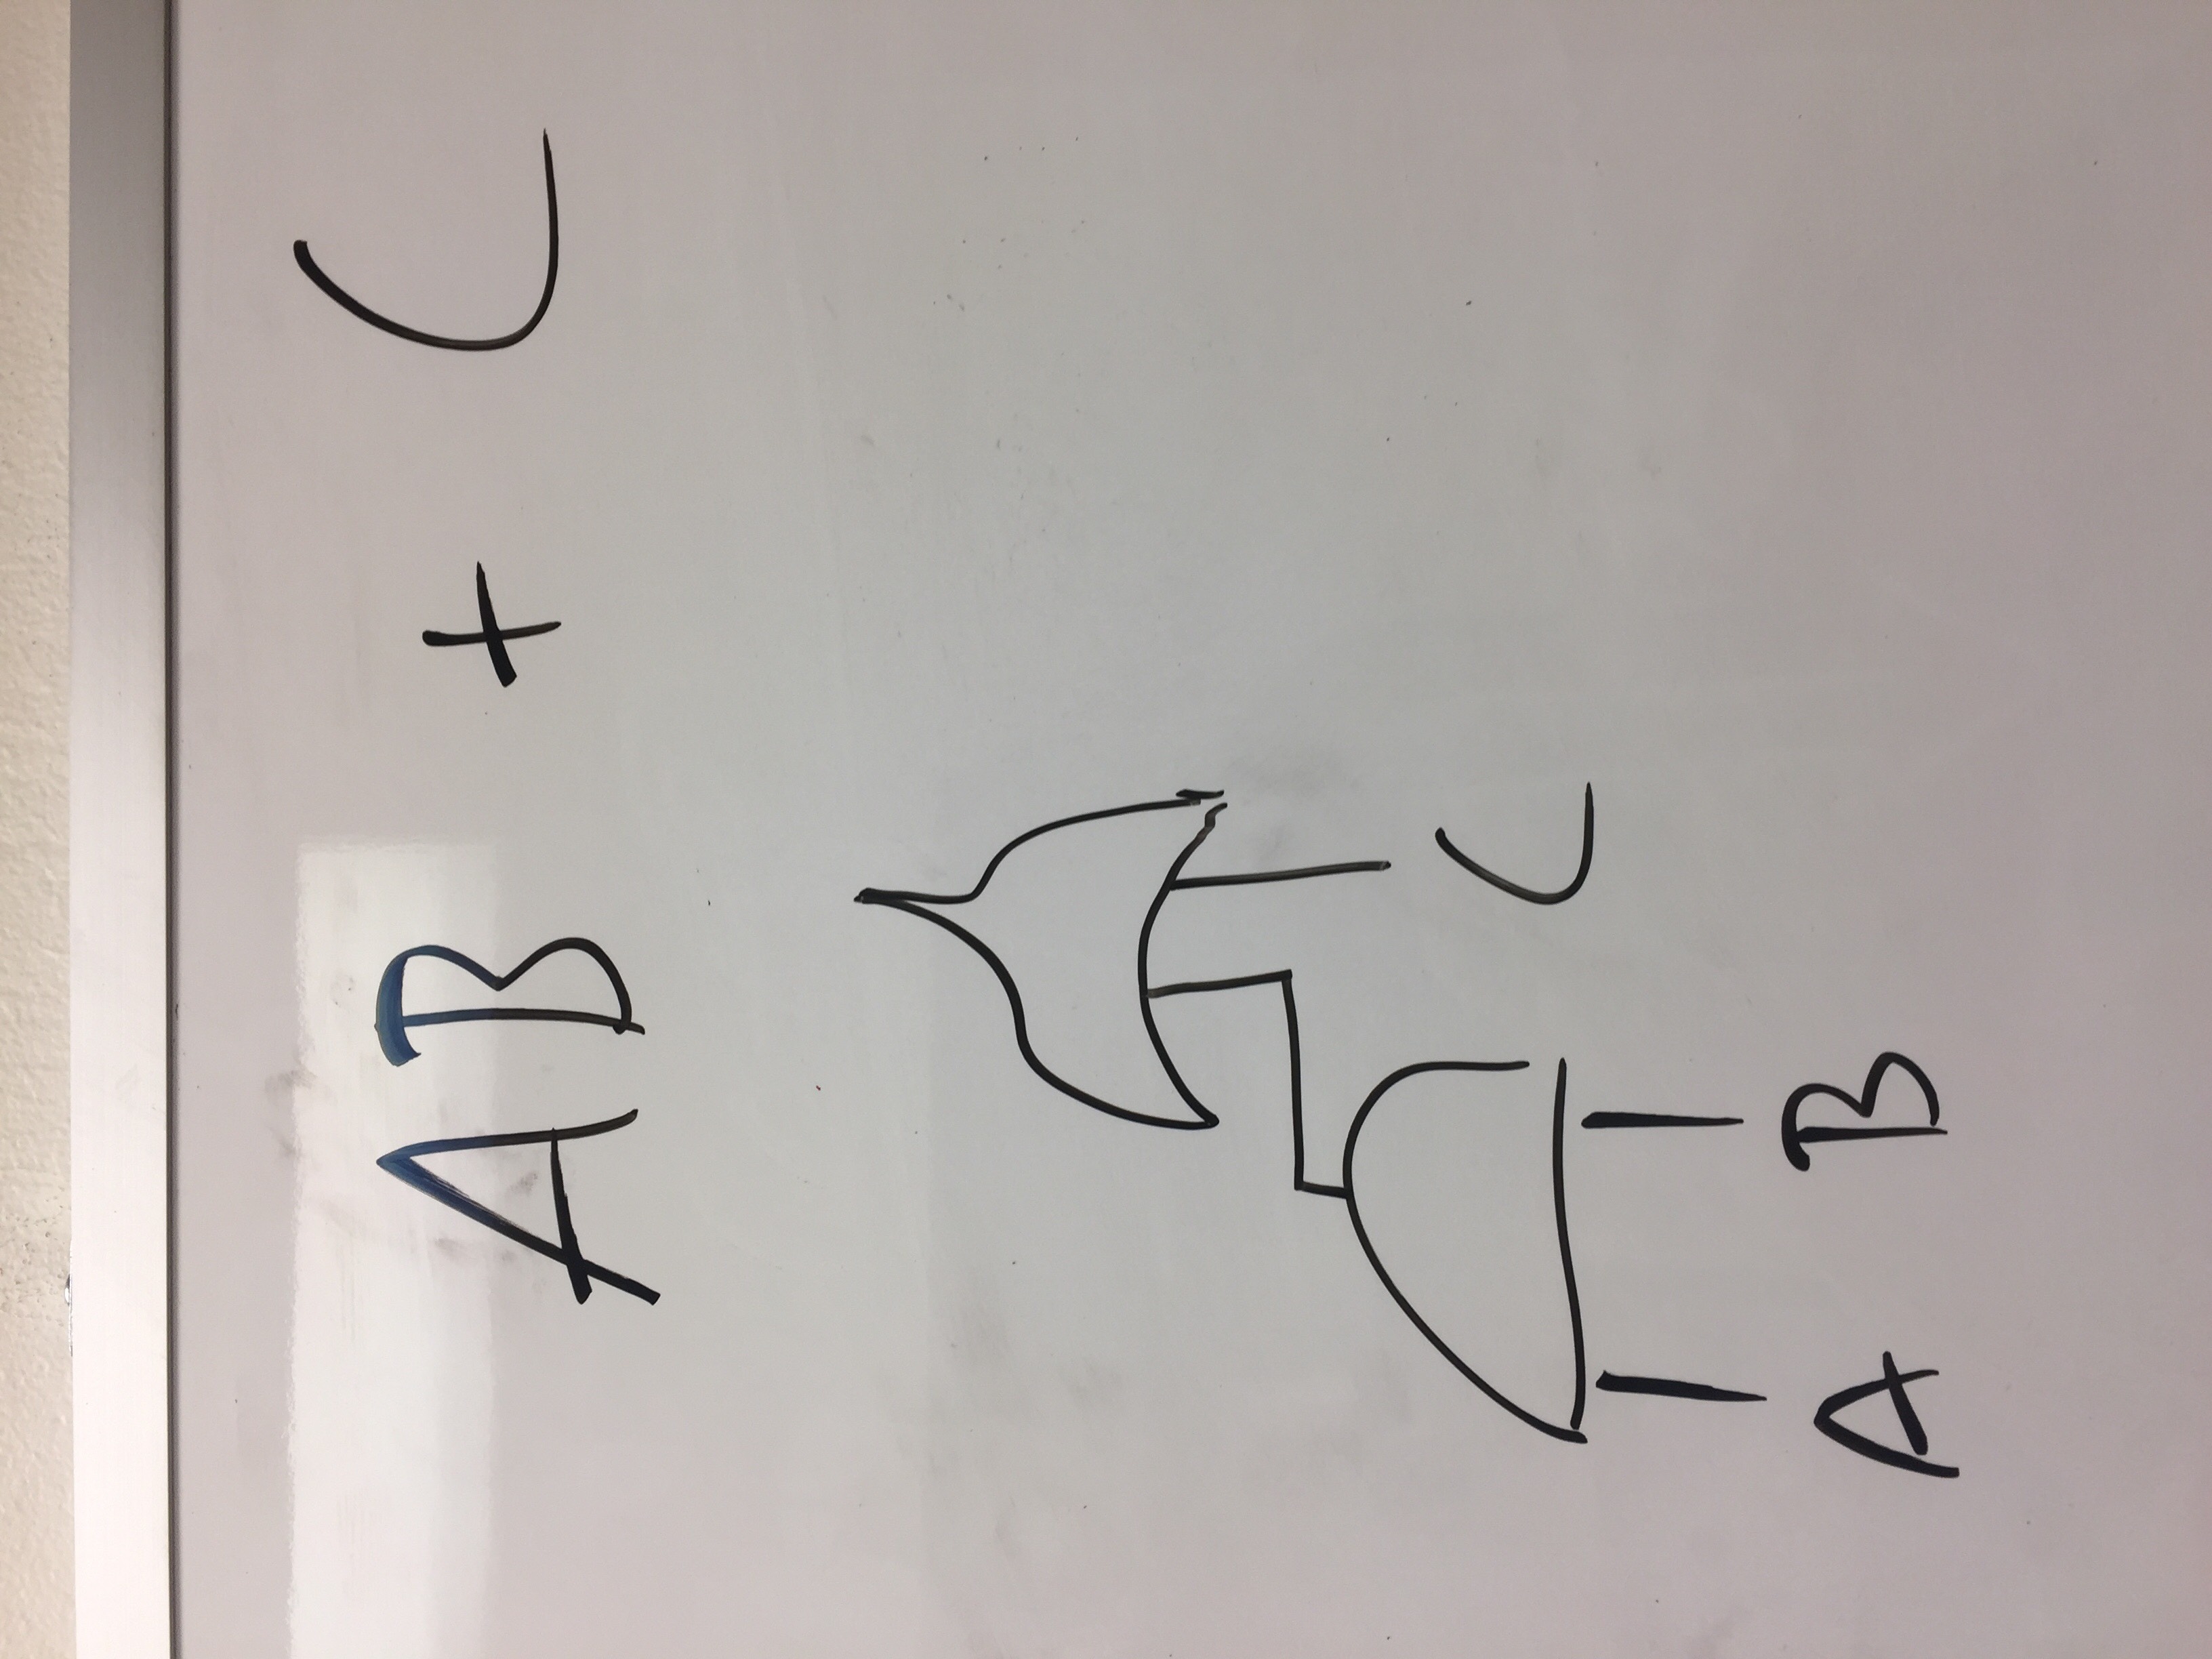 AB + C
C
A B